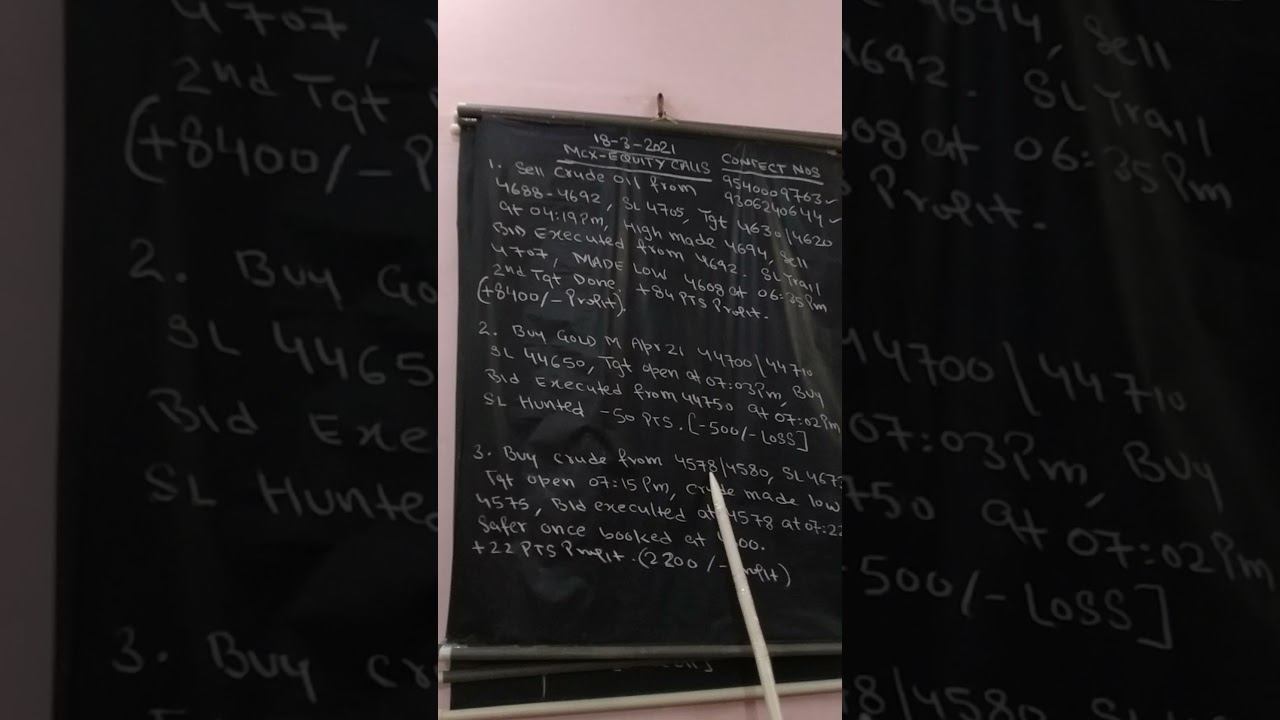 18-3-2021
MCX-EQUITY CALLS
CONTECT NOS
9540009763
9306240644
1. Sell Crude Oil from
4688-4692, SL 4705, Tgt 4630/4620
at 04:19Pm, High made 4694, Sell
Bid Executed from 4692. SL Trail
4707, MADE LOW 4608 at 06:35Pm
2nd Tgt Done. +84 PTS Profit.
(+8400/- Profit).
2. Buy GOLD M Apr 21 44700/44710
SL 44650, Tgt open at 07:03Pm, Buy
Bid Executed from 44750 at 07:02Pm
SL Hunted -50 PTS. [-500/- LOSS]
3. Buy crude from 4578/4580, SL 4673
Tgt open 07:15 Pm, crude made low
4575, Bid execulted at 4578 at 07:22
Safer once booked at
+22 PTS Profit. (2200/- Profit)